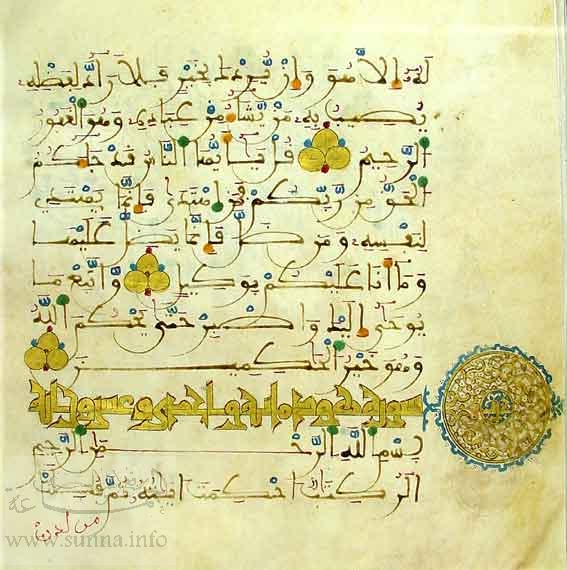 لَهُۥ إِلَّا هُوَ وَإِنْ يُرِدْكَ بِخَيْرٍ فَلَا رَآدَّ لِفَضْلِهِ
يُصِيبُ بِهِ مَنْ يَّشَآءُ مِنْ عِبَادِهِ وَهُوَ الْغَفُورُ
الرَّحِيمُ قُلْ يَٰأَيُّهَا النَّاسُ قَدْ جَآءَكُمُ
الْحَقُّ مِنْ رَّبِّكُمْ فَمَنِ اهْتَدَىٰ فَإِنَّمَا يَهْتَدِي
لِنَفْسِهِ وَمَنْ ضَلَّ فَإِنَّمَا يَضِلُّ عَلَيْهَا
وَمَآ أَنَا عَلَيْكُمْ بِوَكِيلٍ وَاتَّبِعْ مَا
يُوحَىٰ إِلَيْكَ وَاصْبِرْ حَتَّىٰ يَحْكُمَ اللَّهُ
وَهُوَ خَيْرُ الْحَٰكِمِينَ
سورة هود مائة واحدى وعشرون اية
بِسْمِ اللَّهِ الرَّحْمَٰنِ الرَّحِيمِ
الٓر كِتَٰبٌ احْكِمَتَ ايَٰتُهُ ثُمَّ فُصِّلَتْ
من لدن
www.sunna.info